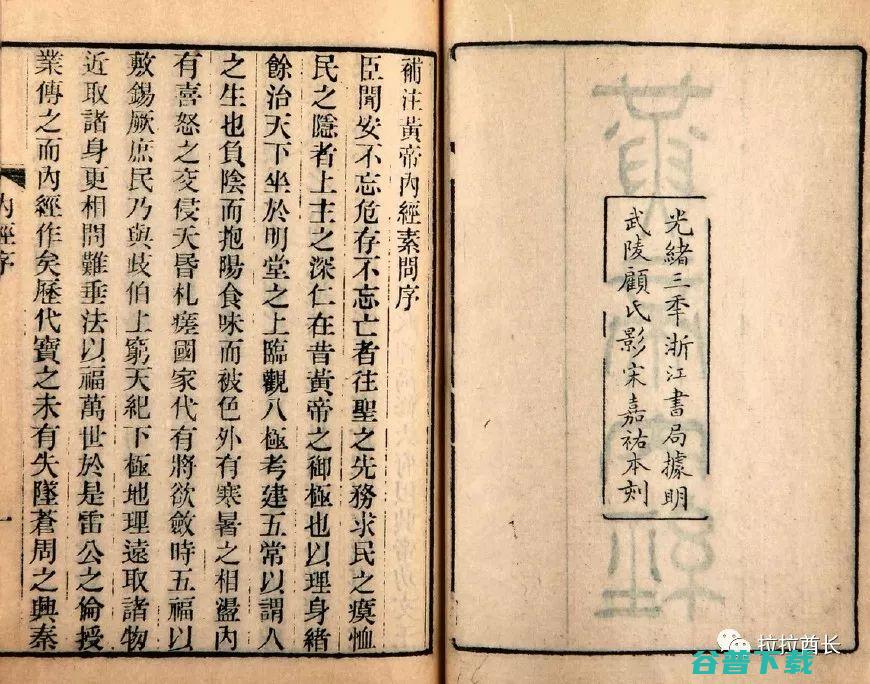 光緒三年浙江書局據明
武陵顧氏影宋嘉祐本刻
補注黃帝內經素問序
臣聞安不忘危存不忘亡者往聖之先務求民之瘼恤
民之隱者上主之深仁在昔黃帝之御極也以理身緒
餘治天下坐於明堂之上臨觀八極考建五常以謂人
之生也負陰而抱陽食味而被色外有寒暑之相盪內
有喜怒之交侵夭昏札瘥國家代有將欲斂時五福以
敷錫厥庶民乃與歧伯上窮天紀下極地理遠取諸物
近取諸身更相問難垂法以福萬世於是雷公之倫授
業傳之而內經作矣歷代寶之未有失墜蒼周之興秦
內經序
一
拉拉酋长
谷普下载